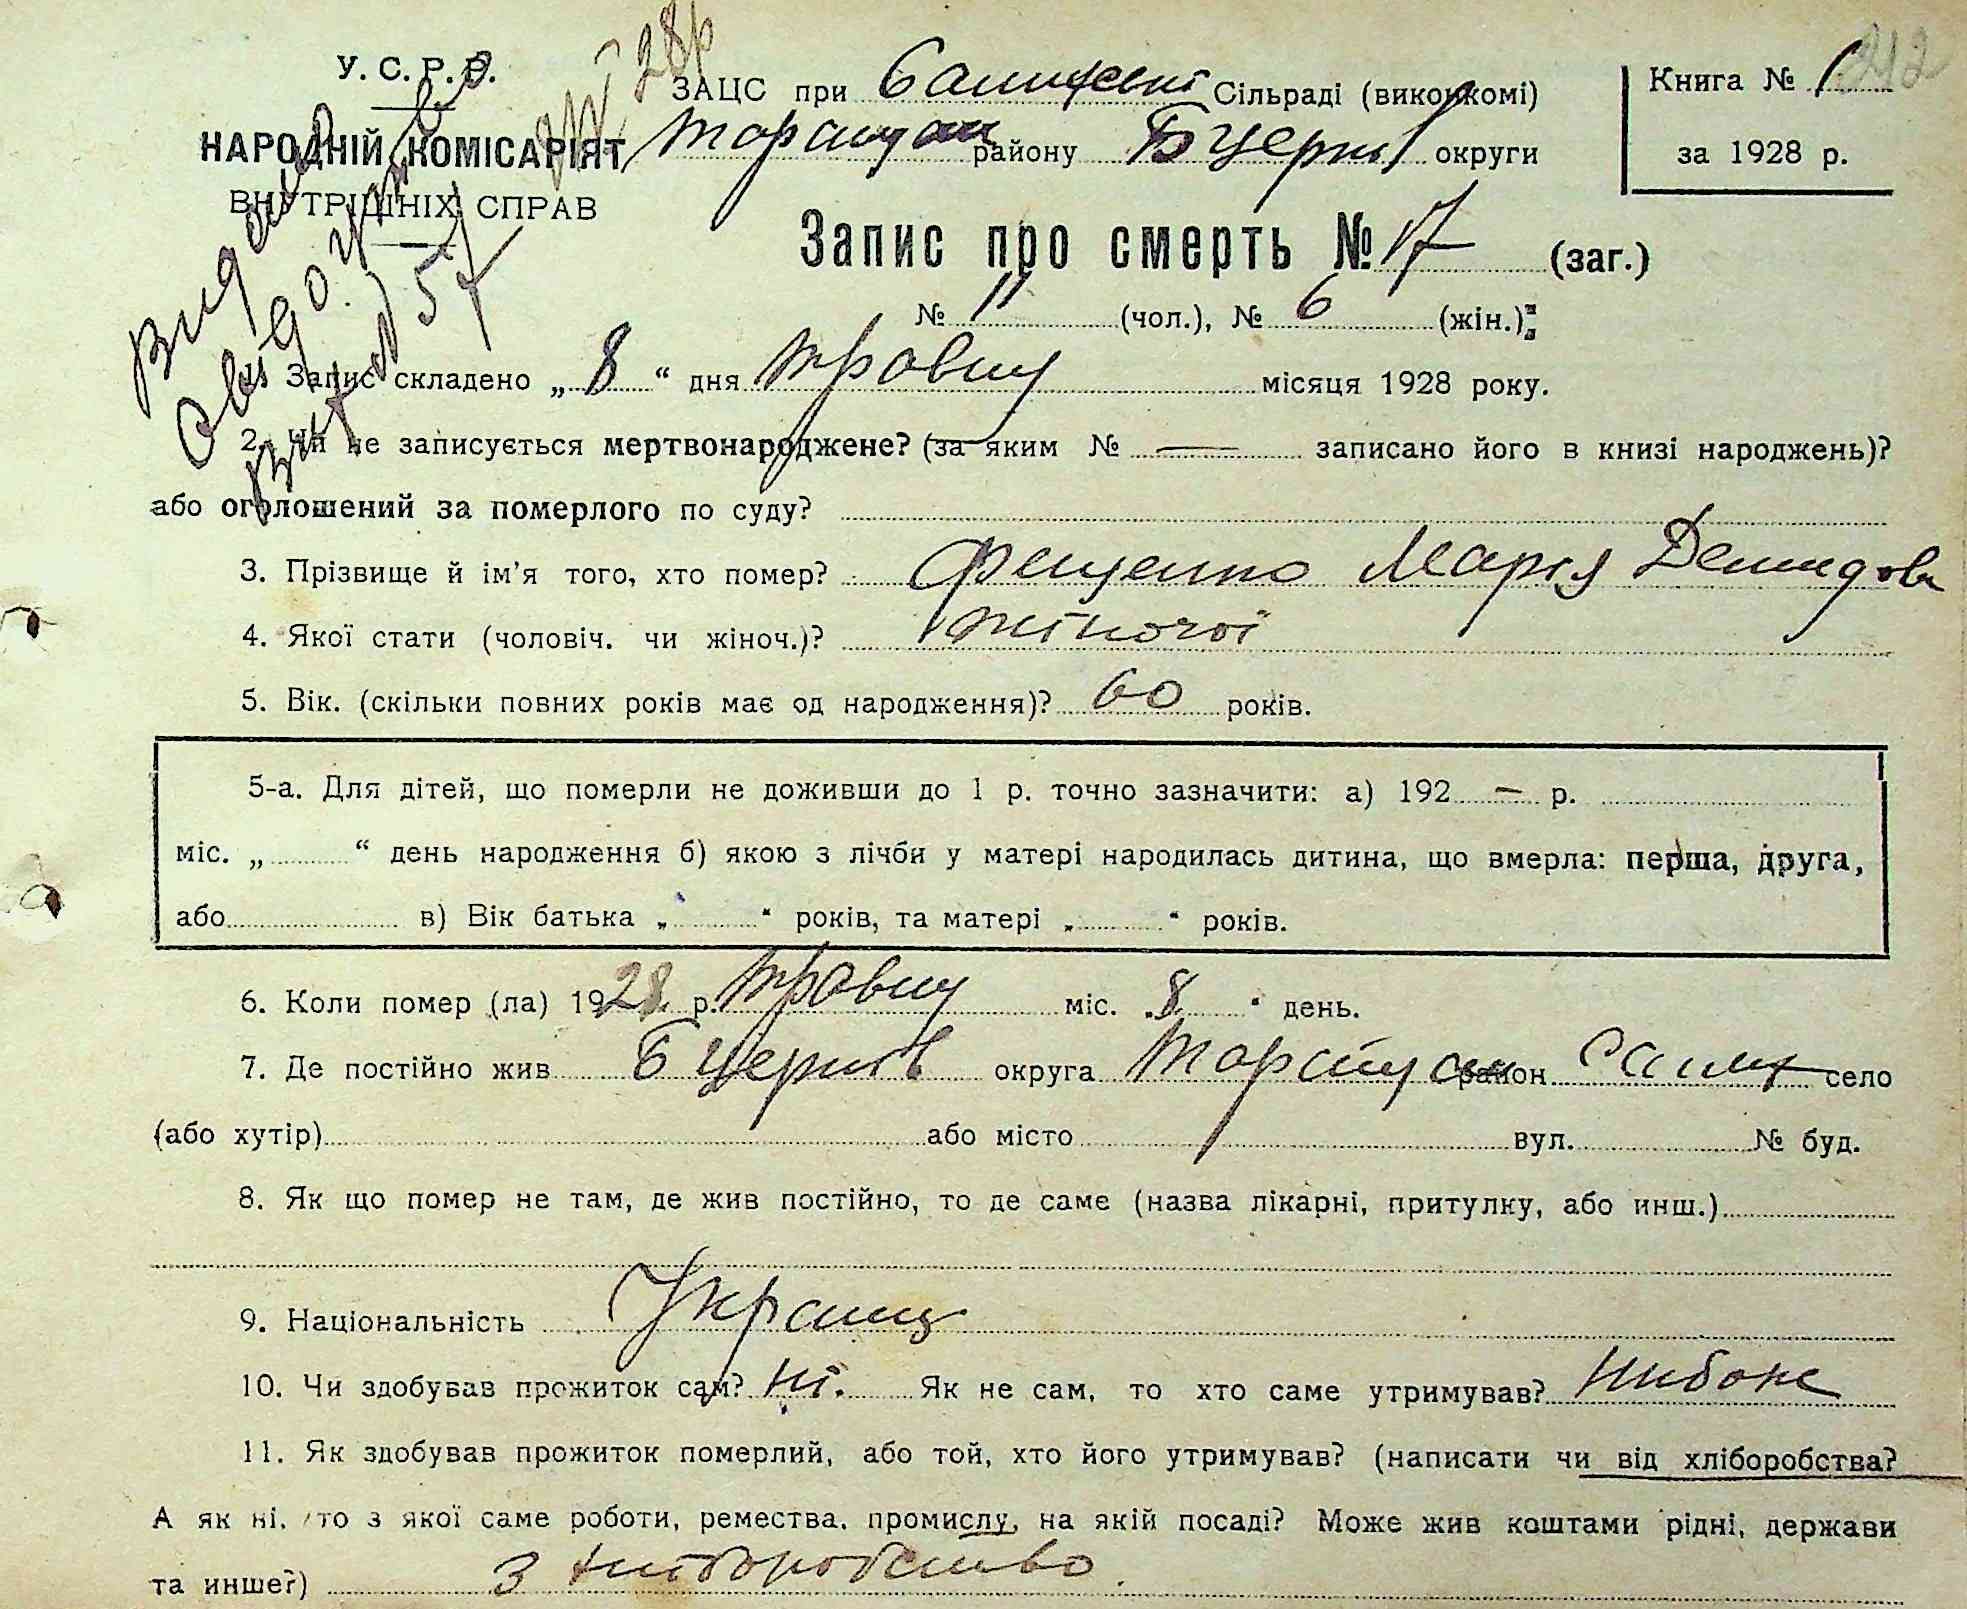 У. С. Р. Р.
НАРОДНІЙ КОМІСАРІЯТ
ВНУТРІШНІХ СПРАВ
28р
ЗАЦС при Сільраді (виконкомі)
району Бцеркі округи
Книга № 1
212
за 1928 р.
Запис про смерть № 17 (заг.)
№ 11 (чол.), № 6 (жін.):
1. Запис складено „ 8 “ дня травня місяця 1928 року.
2. Чи не записується мертвонароджене? (за яким № — записано його в книзі народжень)?
або оголошений за померлого по суду?
3. Прізвище й ім'я того, хто помер? Фещенко Марія Демидова
4. Якої стати (чоловіч. чи жіноч.)? жіночої
5. Вік. (скільки повних років має од народження)? 60 років.
5-а. Для дітей, що померли не доживши до 1 р. точно зазначити: а) 192 — р.
міс. „ “ день народження б) якою з лічби у матері народилась дитина, що вмерла: перша, друга,
або в) Вік батька „ “ років, та матері „ “ років.
6. Коли помер (ла) 1928 р. травня міс. „ 8 “ день.
7. Де постійно жив округа район село
(або хутір) або місто вул. № буд.
8. Як що помер не там, де жив постійно, то де саме (назва лікарні, притулку, або инш.)
9. Національність Україн
10. Чи здобував прожиток сам? ні. Як не сам, то хто саме утримував?
11. Як здобував прожиток померлий, або той, хто його утримував? (написати чи від хліборобства?
А як ні, то з якої саме роботи, ремества, промислу, на якій посаді? Може жив коштами рідні, держави
та инше?) з хліборобство.